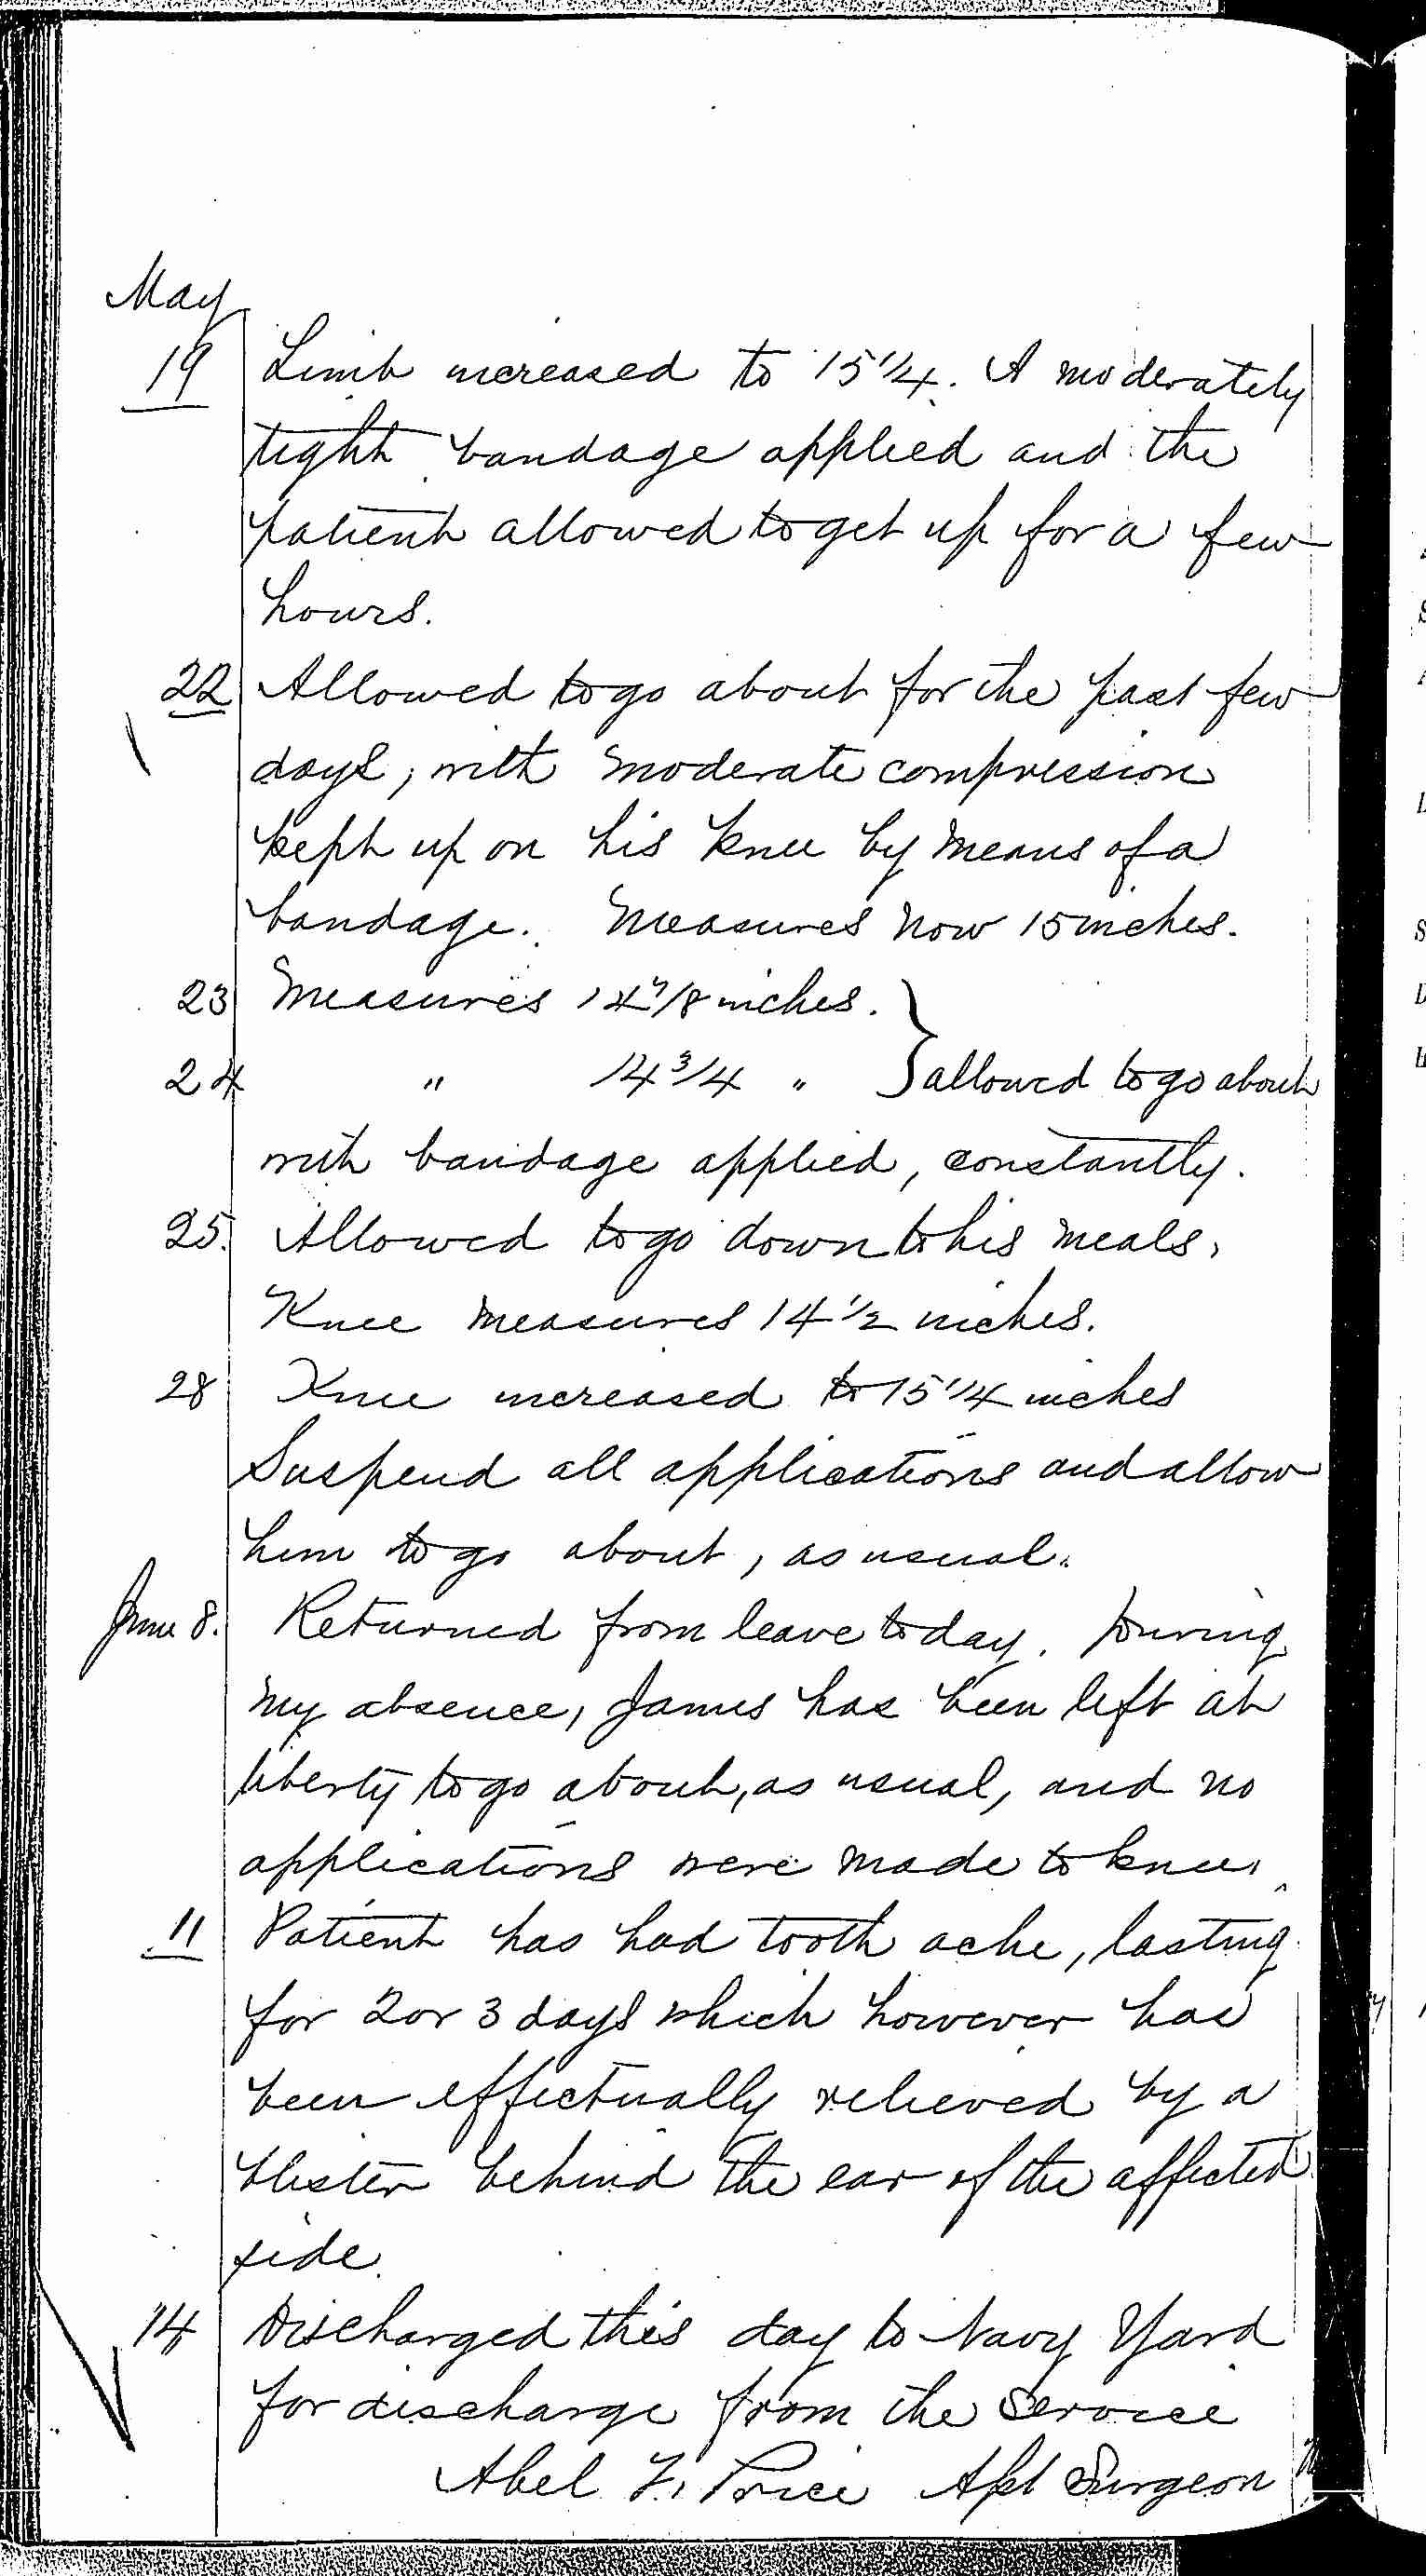 May
19 Limb increased to 15 1/4. A moderately
tight bandage applied and the
patient allowed to get up for a few
hours.
22 Allowed to go about for the past few
days, with moderate compression
kept up on his knee by means of a
bandage. Measures now 15 inches.
23 Measures 14 7/8 inches. }
24 " 14 3/4 " } allowed to go about
with bandage applied, constantly.
25. Allowed to go down to his meals,
Knee measures 14 1/2 inches.
28 Knee increased to 15 1/4 inches
Suspend all applications and allow
him to go about, as usual.
June 8. Returned from leave today. During
my absence, James has been left at
liberty to go about, as usual, and no
applications were made to knee.
11 Patient has had tooth ache, lasting
for 2 or 3 days which however has
been effectually relieved by a
blister behind the ear of the affected
side.
14 Discharged this day to Navy Yard
for discharge from the Service
Abel F. Price Ast Surgeon